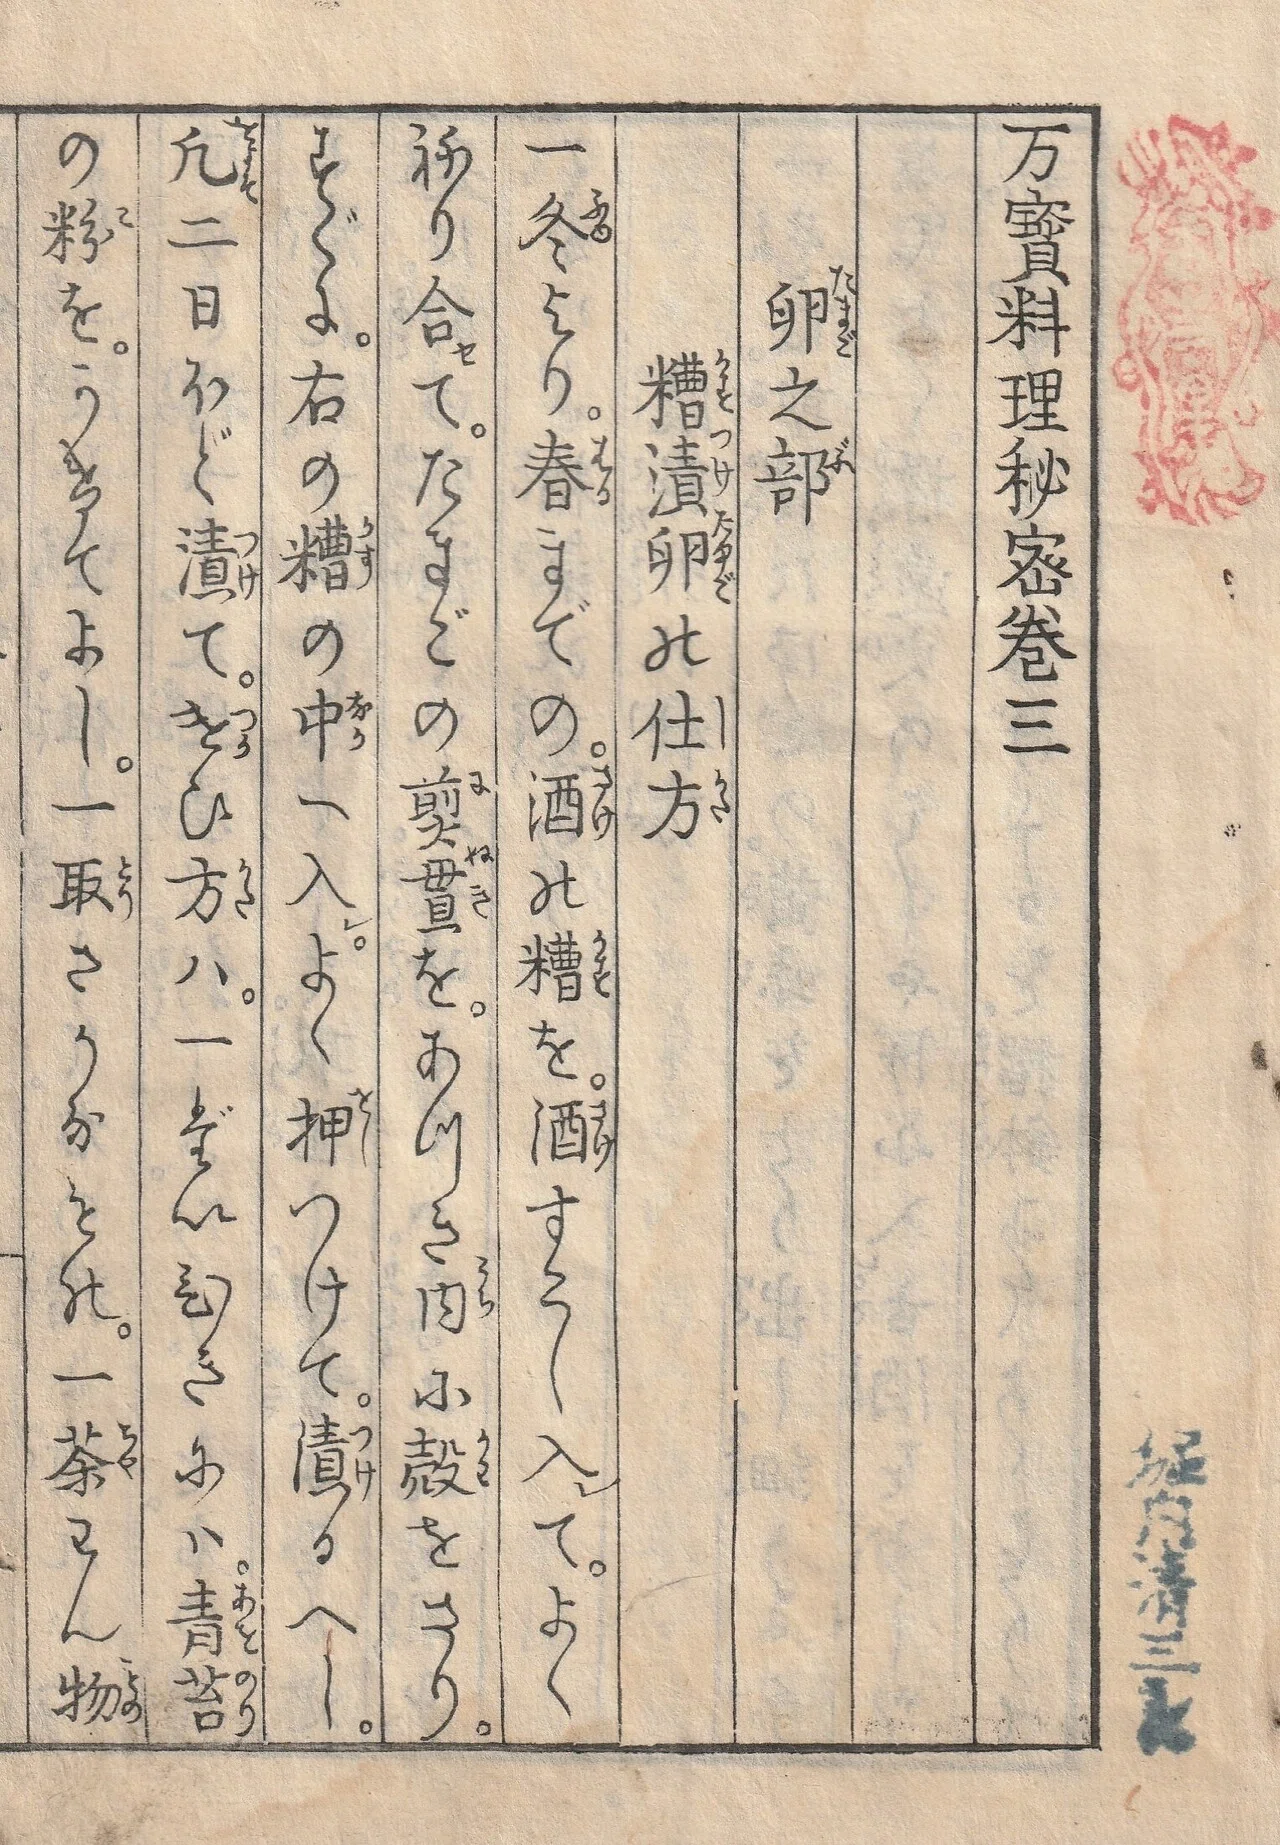 万寳料理秘密巻三
卵之部
糟漬卵の仕方
一冬より。春までの。酒の糟を。酒すこし入レて。よく
ねり合セて。たまごの煎貫を。あつき内に殻をさり。
すぐに。右の糟の中へ入レ。よく押つけて。漬るへし。
凡二日ほど漬て。つかひ方ハ。一だいひきにハ。青苔
の粉を。うけてよし。一取さかなとの。一茶わん物
堀内清三